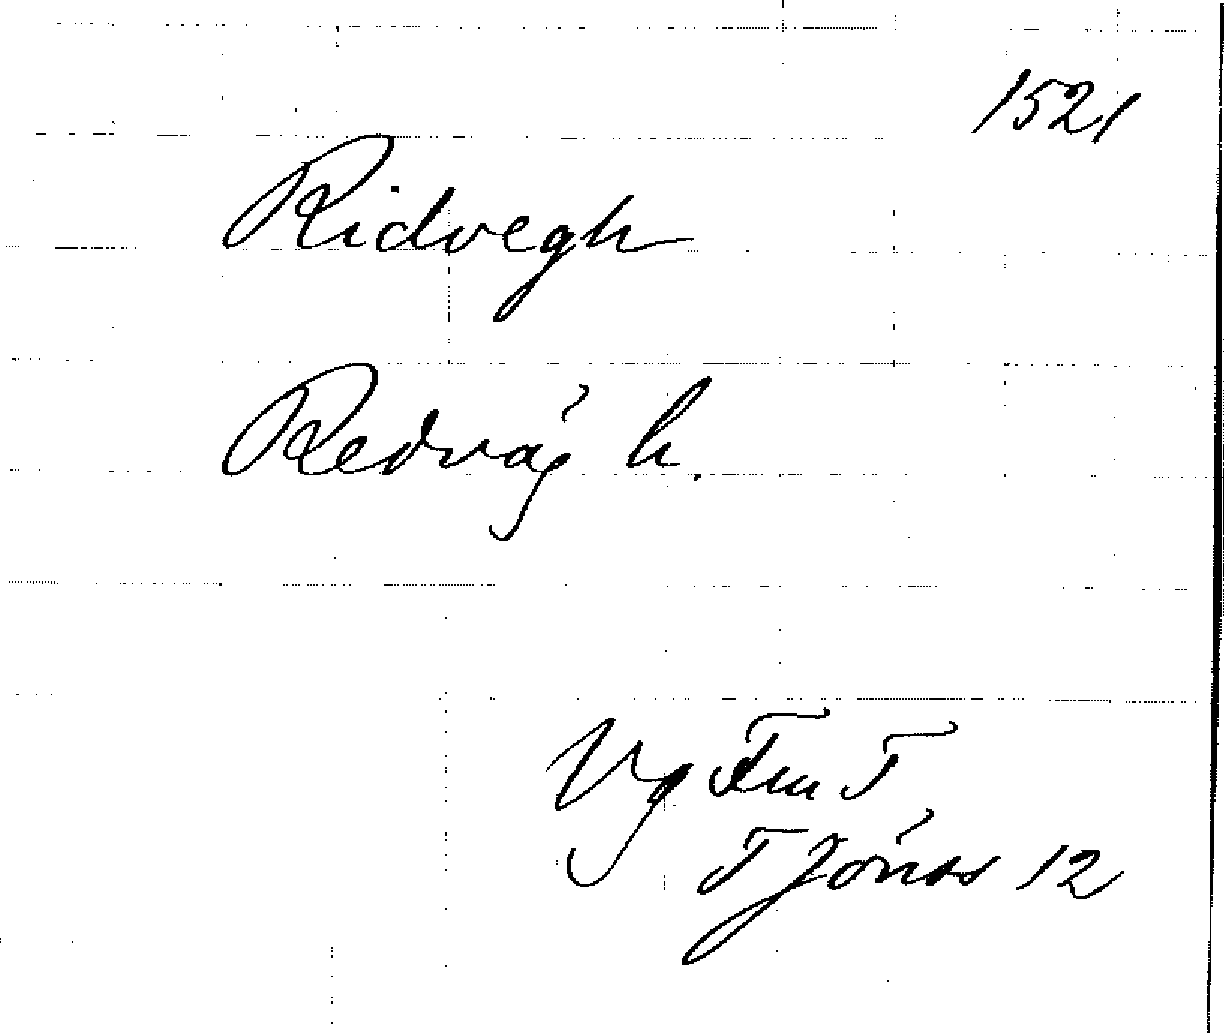 1521
Ridvegh
Redvág h.
Vg Fm T
T Jónás 12